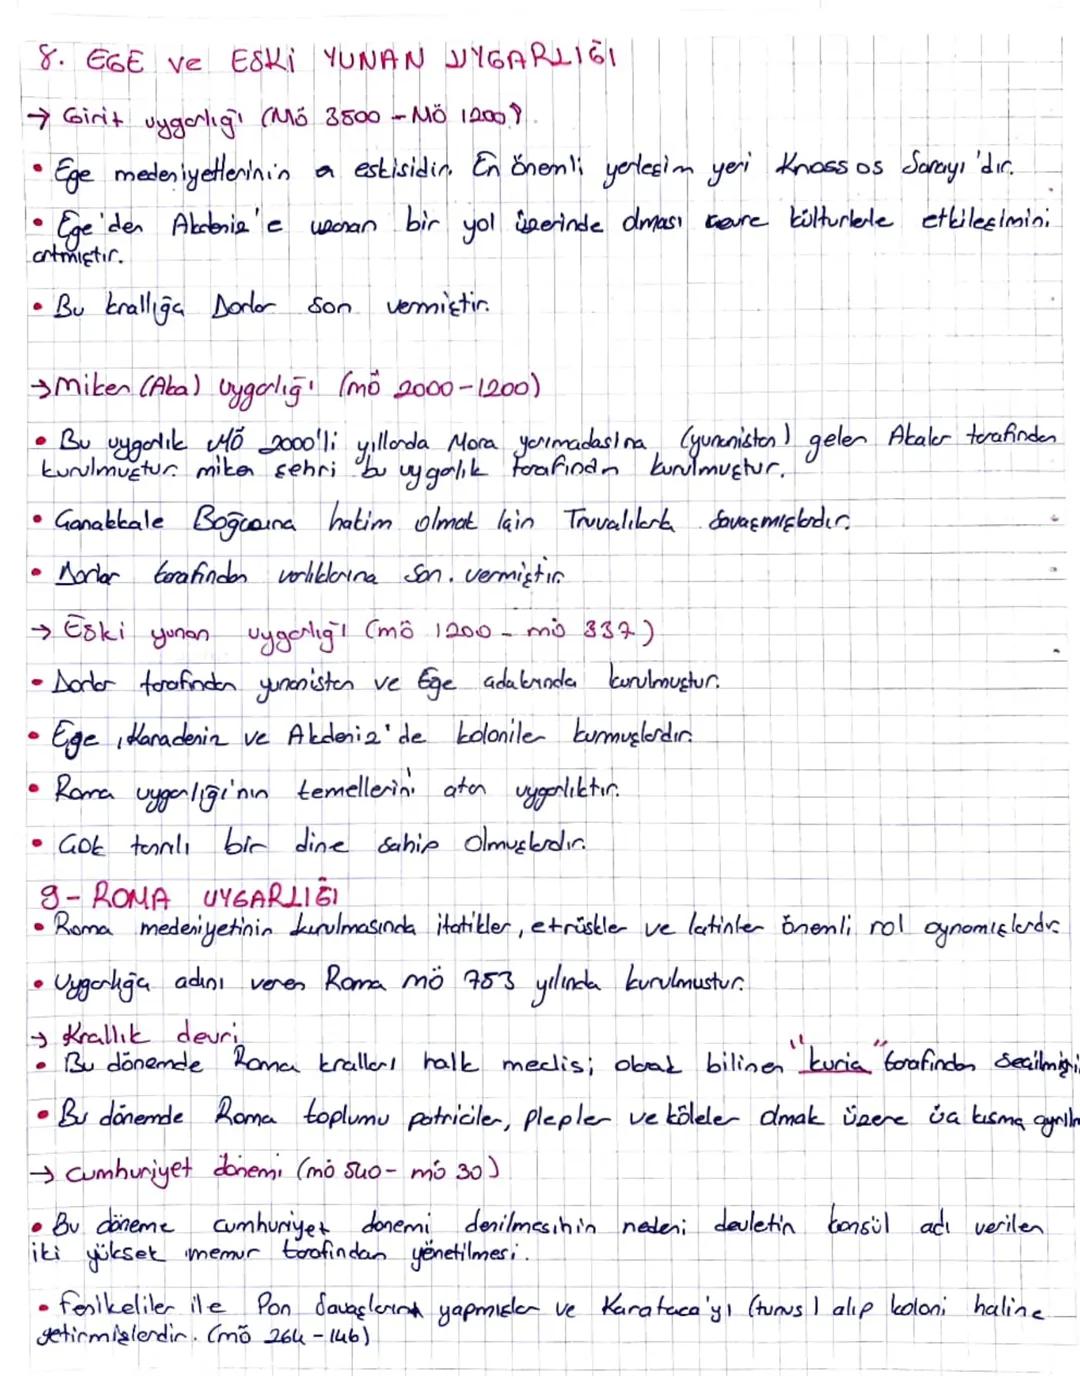 8. EGE ve ESKİ YUNAN UYGARLIĞI
→ Girit uygarlığı (MÖ 3500 - MÖ 1200)
• Ege medeniyetlerinin a eskisidir. En önemli yerleşim yeri Knossos Sarayı'dır.
• Ege'den Akdeniz'e uzanan bir yol üzerinde olması çevre kültürlerle etkileşimini
artmıştır.
• Bu krallığa Dorlar son vermiştir.
→ Miken (Aka) uygarlığı (mö 2000-1200)
• Bu uygarlık MÖ 2000'li yıllarda Mora yarımadasına (yunanistan) gelen Akalar tarafından
kurulmuştur. miken şehri bu uygarlık tarafından kurulmuştur.
• Çanakkale Boğazına hakim olmak için Truvalılarla savaşmışlardır.
• Dorlar tarafından varlıklarına son vermiştir.
→ Eski yunan uygarlığı (mö 1200 - mö 337)
• Dorlar tarafından yunanistan ve Ege adalarında kurulmuştur.
• Ege, Karadeniz ve Akdeniz'de koloniler kurmuşlardır.
• Roma uygarlığı'nın temellerini atan uygarlıktır.
• Çok tanrılı bir dine sahip olmuşlardır.
9- ROMA UYGARLIĞI
• Roma medeniyetinin kurulmasında italikler, etrüskler ve latinler önemli rol oynamışlardır
• Uygarlığa adını veren Roma mö 753 yılında kurulmustur.
→ Krallık devri
• Bu dönemde Roma kralları halk meclisi; olarak bilinen "kuria" tarafından seçilmişti
• Bu dönemde Roma toplumu patriciler, plepler ve köleler olmak üzere üç kısma ayrılm
→ cumhuriyet dönemi (mö 540 - mö 30)
• Bu döneme cumhuriyet donemi denilmesinin nedeni devletin konsül adı verilen
iki yüksek memur tarafından yönetilmesi.
• Fenikeliler ile Pön Savaşlarını yapmışlar ve Karataca'yı (tunus) alıp koloni haline
getirmişlerdir. (mö 264 - 146)